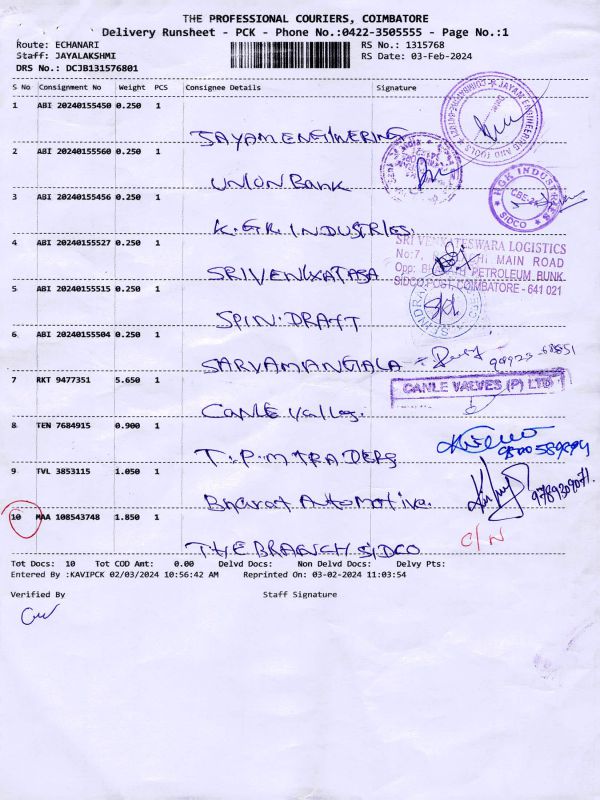 THE PROFESSIONAL COURIERS, COIMBATORE
Delivery Runsheet - PCK - Phone No.:0422-3505555 - Page No.:1
Route: ECHANARI RS No.: 1315768
Staff: JAYALAKSHMI RS Date: 03-Feb-2024
DRS No.: DCJB131576801
S No Consignment No Weight PCS Consignee Details Signature
1 ABI 20240155450 0.250 1
JAYAM ENGINEERING
2 ABI 20240155560 0.250 1
UNION Bank
3 ABI 20240155456 0.250 1
K.G.K. INDUSTRIES.
HGK INDUSTRIES
SIDCO
4 ABI 20240155527 0.250 1
SRIVENKATASA
SRI VENKATESWARA LOGISTICS
No:7, MAIN ROAD
Opp: PETROLEUM BUNK
SIDCO POST, COIMBATORE - 641 021
5 ABI 20240155515 0.250 1
SPIN:DRAFT
6 ABI 20240155504 0.250 1
SARVAMANGALA
7 RKT 9477351 5.650 1
CANLE Valley.
CANLE VALVES (P) LTD
8 TEN 7684915 0.900 1
T.P.M TRADERS
9 TVL 3853115 1.050 1
Bharat Automotive.
9789309071.
10 MAA 108543748 1.850 1
THE BRANCH SIDCO
C/N
Tot Docs: 10 Tot COD Amt: 0.00 Delvd Docs: Non Delvd Docs: Delvy Pts:
Entered By :KAVIPCK 02/03/2024 10:56:42 AM Reprinted On: 03-02-2024 11:03:54
Verified By Staff Signature